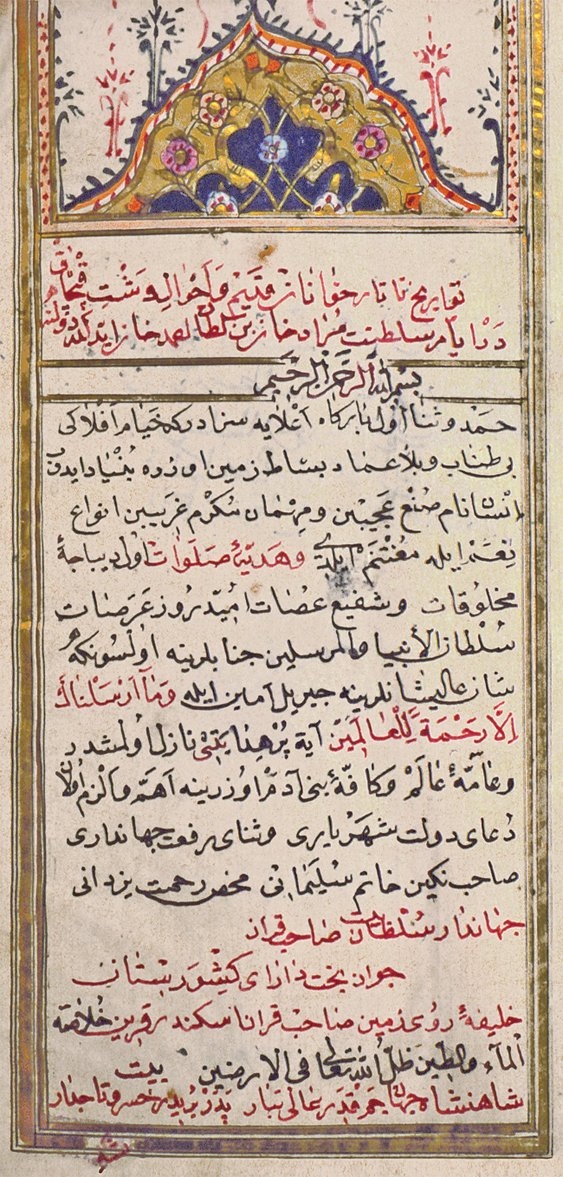 تواریخ تاتار خانان قدیم و احوال دشت قبچاق
در ایام سلطنت مراد خان بن سلطان احمد خان اید الله دولته
بسم الله الرحمن الرحیم
حمد و ثنا اول بارکاه اعلایه سزادرکه خیام افلاکی
بی طناب و بلا عماد بساط زمین اوزره بنیاد ایدوب
انسانام صنع عجیبین و مهمان مکرم غریبین انواع
نعم ایله مغتنم ایلدی وهدیۀ صلوات اول دیباجۀ
مخلوقات و شفیع عصات امید روز عرصات
سلطان الأنبیا والمرسلین جنابلرینه اولسونکه
شان عالیشانلرینه جبریل امین ایله وما أرسلناك
الا رحمة للعالمین آیة برهنا نازل اولمشدر
وعامّۀ عالم وکافّۀ بنی آدم اوزرینه اهم والزم اولان
دعای دولت شهریاری و ثنای رفعت جهانداری
صاحب نکین خاتم سلیمانی محض رحمت یزدانی
جهاندار سلطنت صاحبقران
جوان بخت دارای کشورستان
خلیفۀ روی زمین صاحب قران اسکندر قرین خلاصۀ
الماء والطین ظل الله تعالی فی الارضین بیت
شاهنشاه جهان جم قدر عالی تبار پدر بر پدر خسرو تاجدار